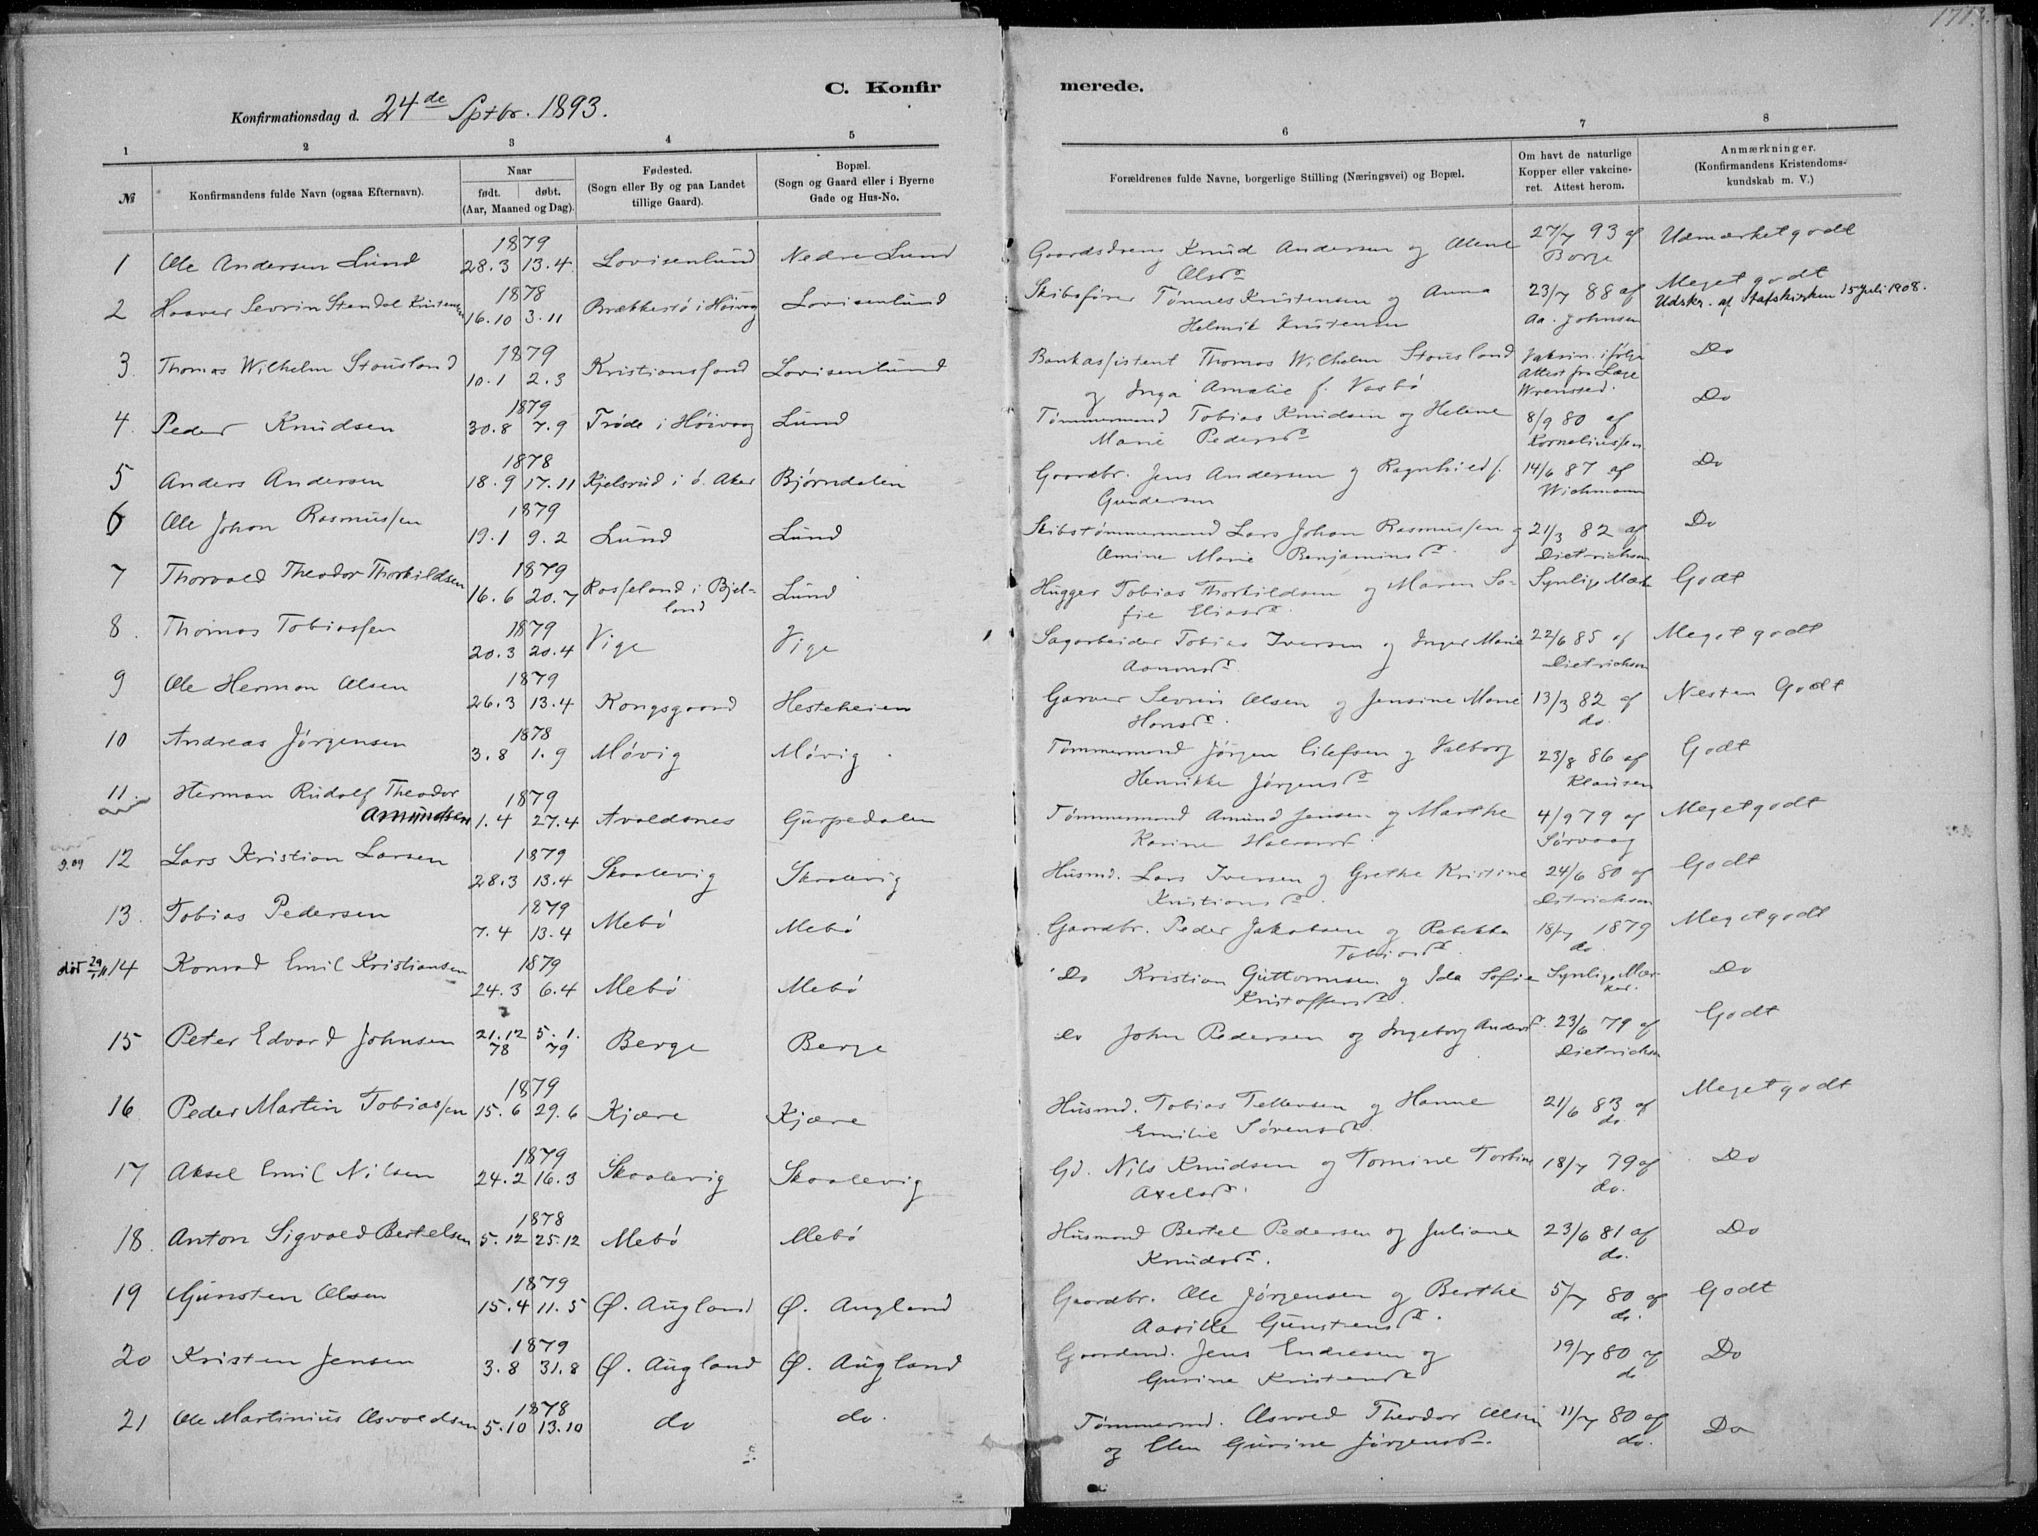 1713.
C. Konfir
merede.
Konfirmationsdag d. 24de Sptbr. 1893.
1 2 3 4 5 6 7 8
№
Konfirmandens fulde Navn (ogsaa Efternavn).
Naar
født. døbt.
(Aar, Maaned og Dag).
Fødested.
(Sogn eller By og paa Landet
tillige Gaard).
Bopæl.
(Sogn og Gaard eller i Byerne
Gade og Hus-No.
Forældrenes fulde Navne, borgerlige Stilling (Næringsvei) og Bopæl.
Om havt de naturlige
Kopper eller vakcine-
ret. Attest herom.
Anmærkninger.
(Konfirmandens Kristendoms-
kundskab m. V.)
1879
1 Ole Andersen Lund 28.3 13.4 Lovisenlund Nedre Lund Gaardsdreng Knud Andersen og Olene 27/7 93 af Udmærket godt
Olsd. Borge
1878
2 Haaver Sevrin Stendal Kristensen 16.10 3.11 Brækkestø i Høivaag Lovisenlund Skibsfører Tønnes Kristensen og Anna 23/7 88 af Meget godt
Helmik Kristensen Aa. Johnsen Udskr. af Statskirken 15 Juli 1908.
1879
3 Thomas Wilhelm Stousland 10.1 2.3 Kristianssand Lovisenlund Bankassistent Thomas Wilhelm Stousland Vaksin. ifølge Do
og Inga Amalie f. Vasbø Attest fra Læge
1879
4. Peder Knudsen 30.8 7.9 Trøde i Høivaag Lund Tømmermand Tobias Knudsen og Helene 8/9 80 af Do
Marie Pedersd. Korneliussen
1878
5 Anders Andersen 18.9 17.11 Kjelsrud i Ø. Aker Bjørndalen Gaardbr. Jens Andersen og Ragnhild f. 14/6 87 af Do
Gundersen Wichmann
1879
6 Ole Johan Rasmussen 19.1 9.2 Lund Lund Skibstømmermand Lars Johan Rasmussen og 21/3 82 af Do
Omine Marie Benjaminsd. Dietrichson
1879
7 Thorvald Theodor Thorkildsen 16.6 20.7 Rosseland i Bjel- Lund Hugger Tobias Thorkildsen og Maren So- Synlige Mærk Godt
land fie Eliasd.
1879
8. Thomas Tobiassen 20.3 20.4 Vige Vige Sagarbeider Tobias Iversen og Inger Marie 22/6 85 af Meget godt
Aanonsd. Dietrichson
1879
9 Ole Herman Olsen 26.3 13.4 Kongsgaard Hesteheien Garver Sevrin Olsen og Jensine Marie 13/3 82 af Nesten Godt
Hansd. do.
1878
10 Andreas Jørgensen 3.8 1.9 Møvig Møvig Tømmermand Jørgen Eilefsen og Valborg 23/8 86 af Godt
Henrikke Jørgensd. Klausen
11. Herman Rudolf Theodor 1879
Amundsen 1.4 27.4 Avaldsnes Gurpedalen Tømmermand Amund Jensen og Marthe 4/9 79 af Meget godt
Karine Halvorsd. Sørvaag
1879
12 Lars Kristian Larsen 28.3 13.4 Skaalevig Skaalevig Husmd. Lars Iversen og Grethe Kristine 24/6 80 af Godt
Kristiansd. Ditrichsen
1879
13. Tobias Pedersen 7.4 13.4 Mebø Mebø Gaardbr. Peder Jakobsen og Rebekka 18/7 1879 Meget godt
Tobiasd. do
1879
død 29/11 14 Konrad Emil Kristiansen 24.3 6.4 Mebø Mebø Do Kristian Guttormsen og Ida Sofie Synlige Mær- Do
Kristoffersd. ker.
15 Peter Edvard Johnsen 21.12 78 5.1. 79 Berge Berge Do John Pedersen og Ingeborg Andersd. 23/6 79 af Godt
Dietrichson
1879
16 Peder Martin Tobiassen 15.6 29.6 Kjære Kjære Husmd. Tobias Tellevsen og Hanne 21/6 83 af Meget godt
Emilie Sørensd. do.
1879
17 Aksel Emil Nilsen 24.2 16.3 Skaalevig Skaalevig Gd. Nils Knudsen og Tomine Torbine 18/7 79 af Do
Axelsd. do.
1878
18. Anton Sigvald Bertelsen 5.12 25.12 Mebø Mebø Husmand Bertel Pedersen og Juliane 23/6 81 af Do
Knudsd. do.
1879
19 Gunsten Olsen 15.4 11.5 Ø. Augland Ø. Augland Gaardbr. Ole Jørgensen og Berthe 5/7 80 af Godt
Aasille Gunstensd. do.
1879
20 Kristen Jensen 3.8 31.8 Ø. Augland Ø. Augland Gaardmd. Jens Endresen og 19/7 80 af Do
Gurine Kristensd. do
1878
21 Ole Martinius Osvaldsen 5.10 13.10 do do. Tømmermd. Osvald Theodor Olsen 11/7 80 af Do
og Elen Gurine Jørgensd. do.